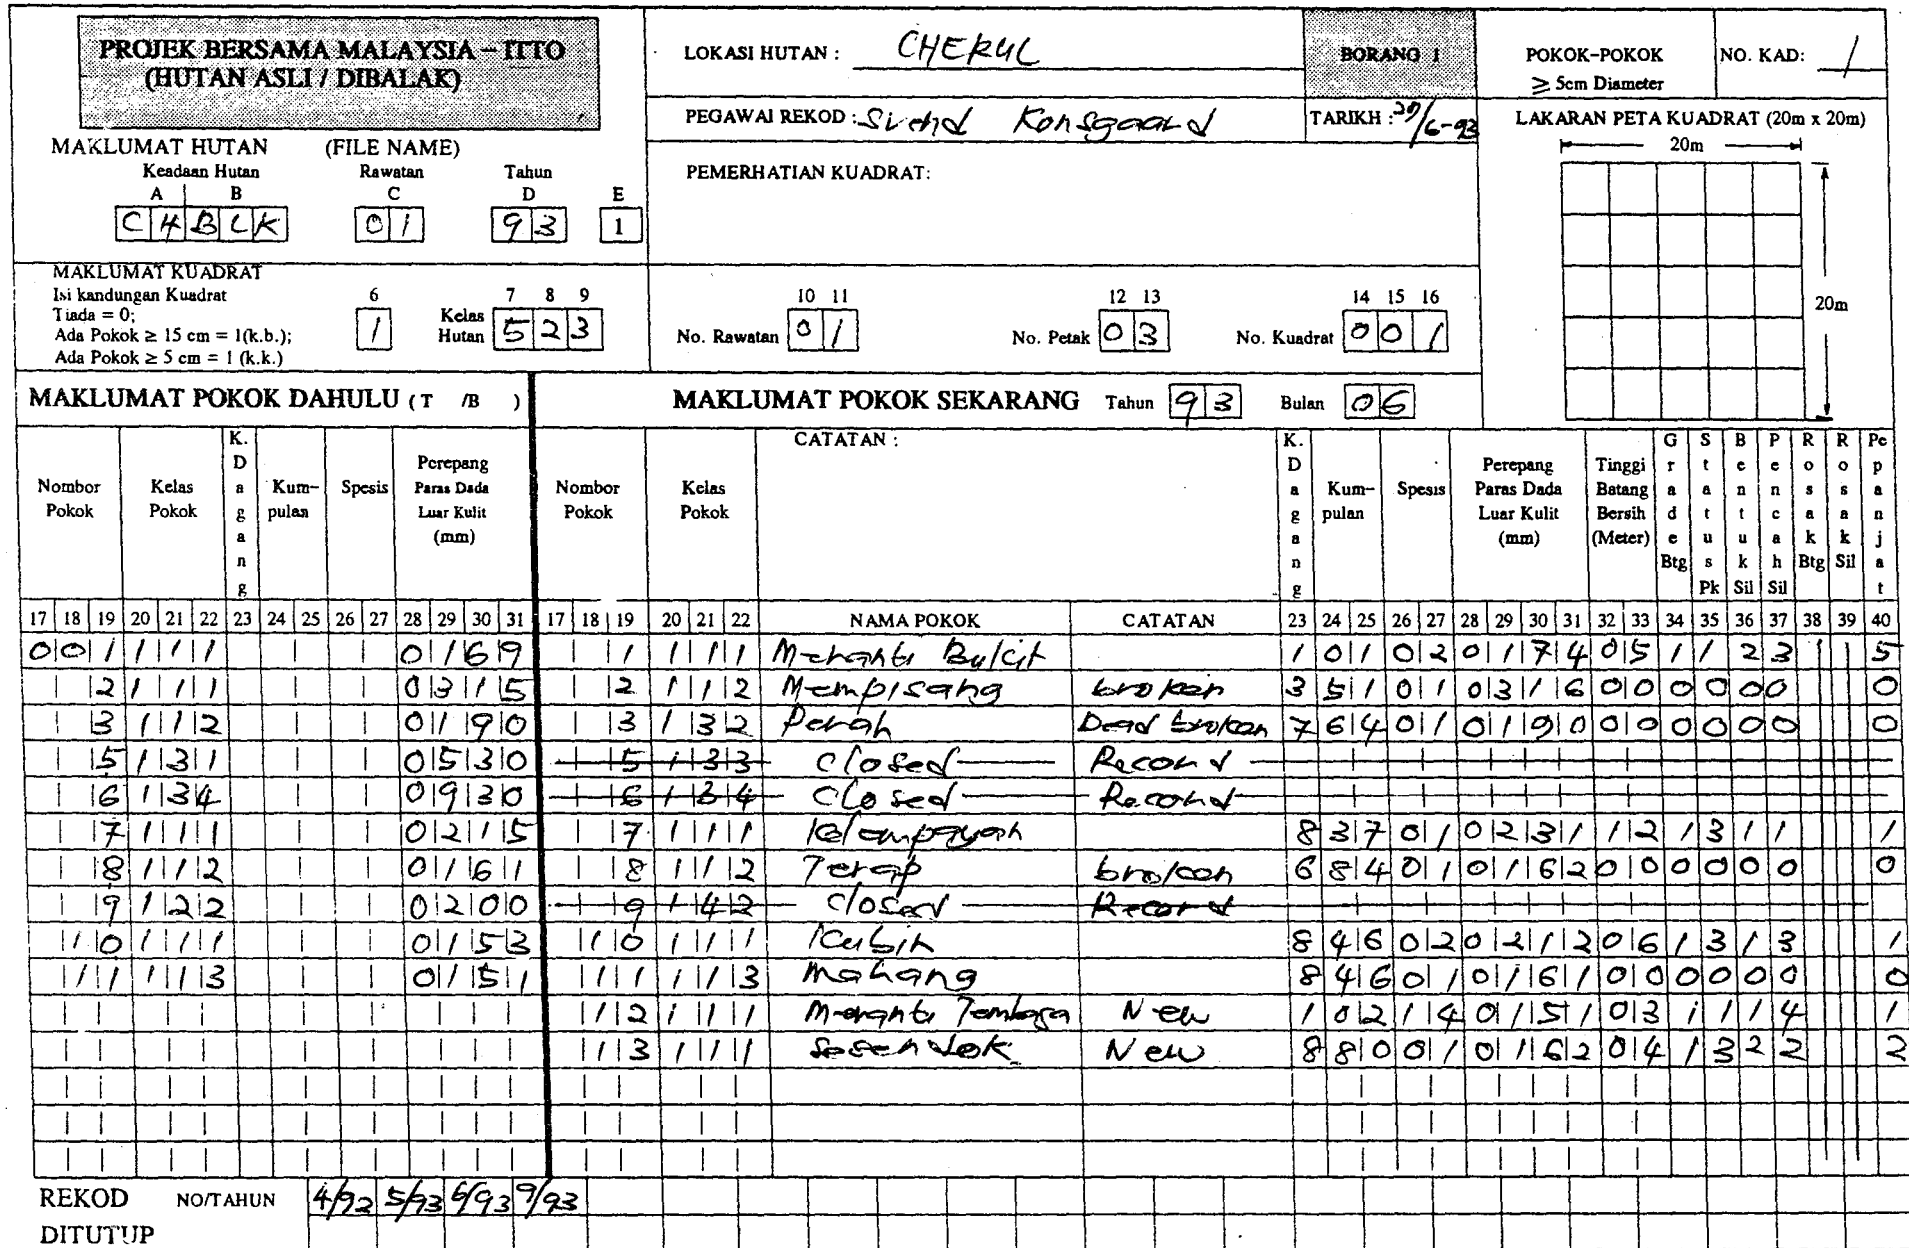 PROJEK BERSAMA MALAYSIA – ITTO
(HUTAN ASLI / DIBALAK)
LOKASI HUTAN : CHERUL
BORANG 1
POKOK-POKOK
≥ 5cm Diameter
NO. KAD: 1
PEGAWAI REKOD : Svend Konsgaard
TARIKH : 29/6-93
LAKARAN PETA KUADRAT (20m x 20m)
20m
20m
MAKLUMAT HUTAN (FILE NAME)
Keadaan Hutan Rawatan Tahun
A B C D E
CHBLK 01 93 1
PEMERHATIAN KUADRAT:
MAKLUMAT KUADRAT
Isi kandungan Kuadrat
Tiada = 0;
Ada Pokok ≥ 15 cm = 1(k.b.);
Ada Pokok ≥ 5 cm = 1 (k.k.)
6
1
7 8 9
Kelas Hutan 523
10 11
No. Rawatan 01
12 13
No. Petak 03
14 15 16
No. Kuadrat 001
MAKLUMAT POKOK DAHULU ( T /B )
MAKLUMAT POKOK SEKARANG Tahun 93 Bulan 06
Nombor Pokok Kelas Pokok K. Dagang Kum-pulan Spesis Perepang Paras Dada Luar Kulit (mm) Nombor Pokok Kelas Pokok CATATAN : K. Dagang Kum-pulan Spesis Perepang Paras Dada Luar Kulit (mm) Tinggi Batang Bersih (Meter) Grade Btg Status Pk Bentuk Sil Pencah Sil Rosak Btg Rosak Sil Pepanjat
17 18 19 20 21 22 23 24 25 26 27 28 29 30 31 17 18 19 20 21 22 NAMA POKOK CATATAN 23 24 25 26 27 28 29 30 31 32 33 34 35 36 37 38 39 40
001 111 0169 1 111 Meranti Bukit 1 01 02 0174 05 1 1 2 3 5
2 111 0315 2 112 Mempisang broken 3 51 01 0316 00 0 0 0 0 0
3 112 0190 3 132 Perah Dead broken 7 64 01 0190 00 0 0 0 0 0
5 131 0530 5 133 Closed Record
6 134 0930 6 134 Closed Record
7 111 0215 7 111 Kelampayan 8 37 01 0231 12 1 3 1 1 1
8 112 0161 8 112 Terap broken 6 84 01 0162 00 0 0 0 0 0
9 122 0200 9 142 Closed Record
10 111 0153 10 111 Kubin 8 46 02 0212 06 1 3 1 3 1
11 113 0151 11 113 Mahang 8 46 01 0161 00 0 0 0 0 0
12 111 Meranti Tembaga New 1 02 14 0151 03 1 1 1 4 1
13 111 Sesendok New 8 80 01 0162 04 1 3 2 2 2
REKOD DITUTUP NO/TAHUN 4/92 5/93 6/93 9/93